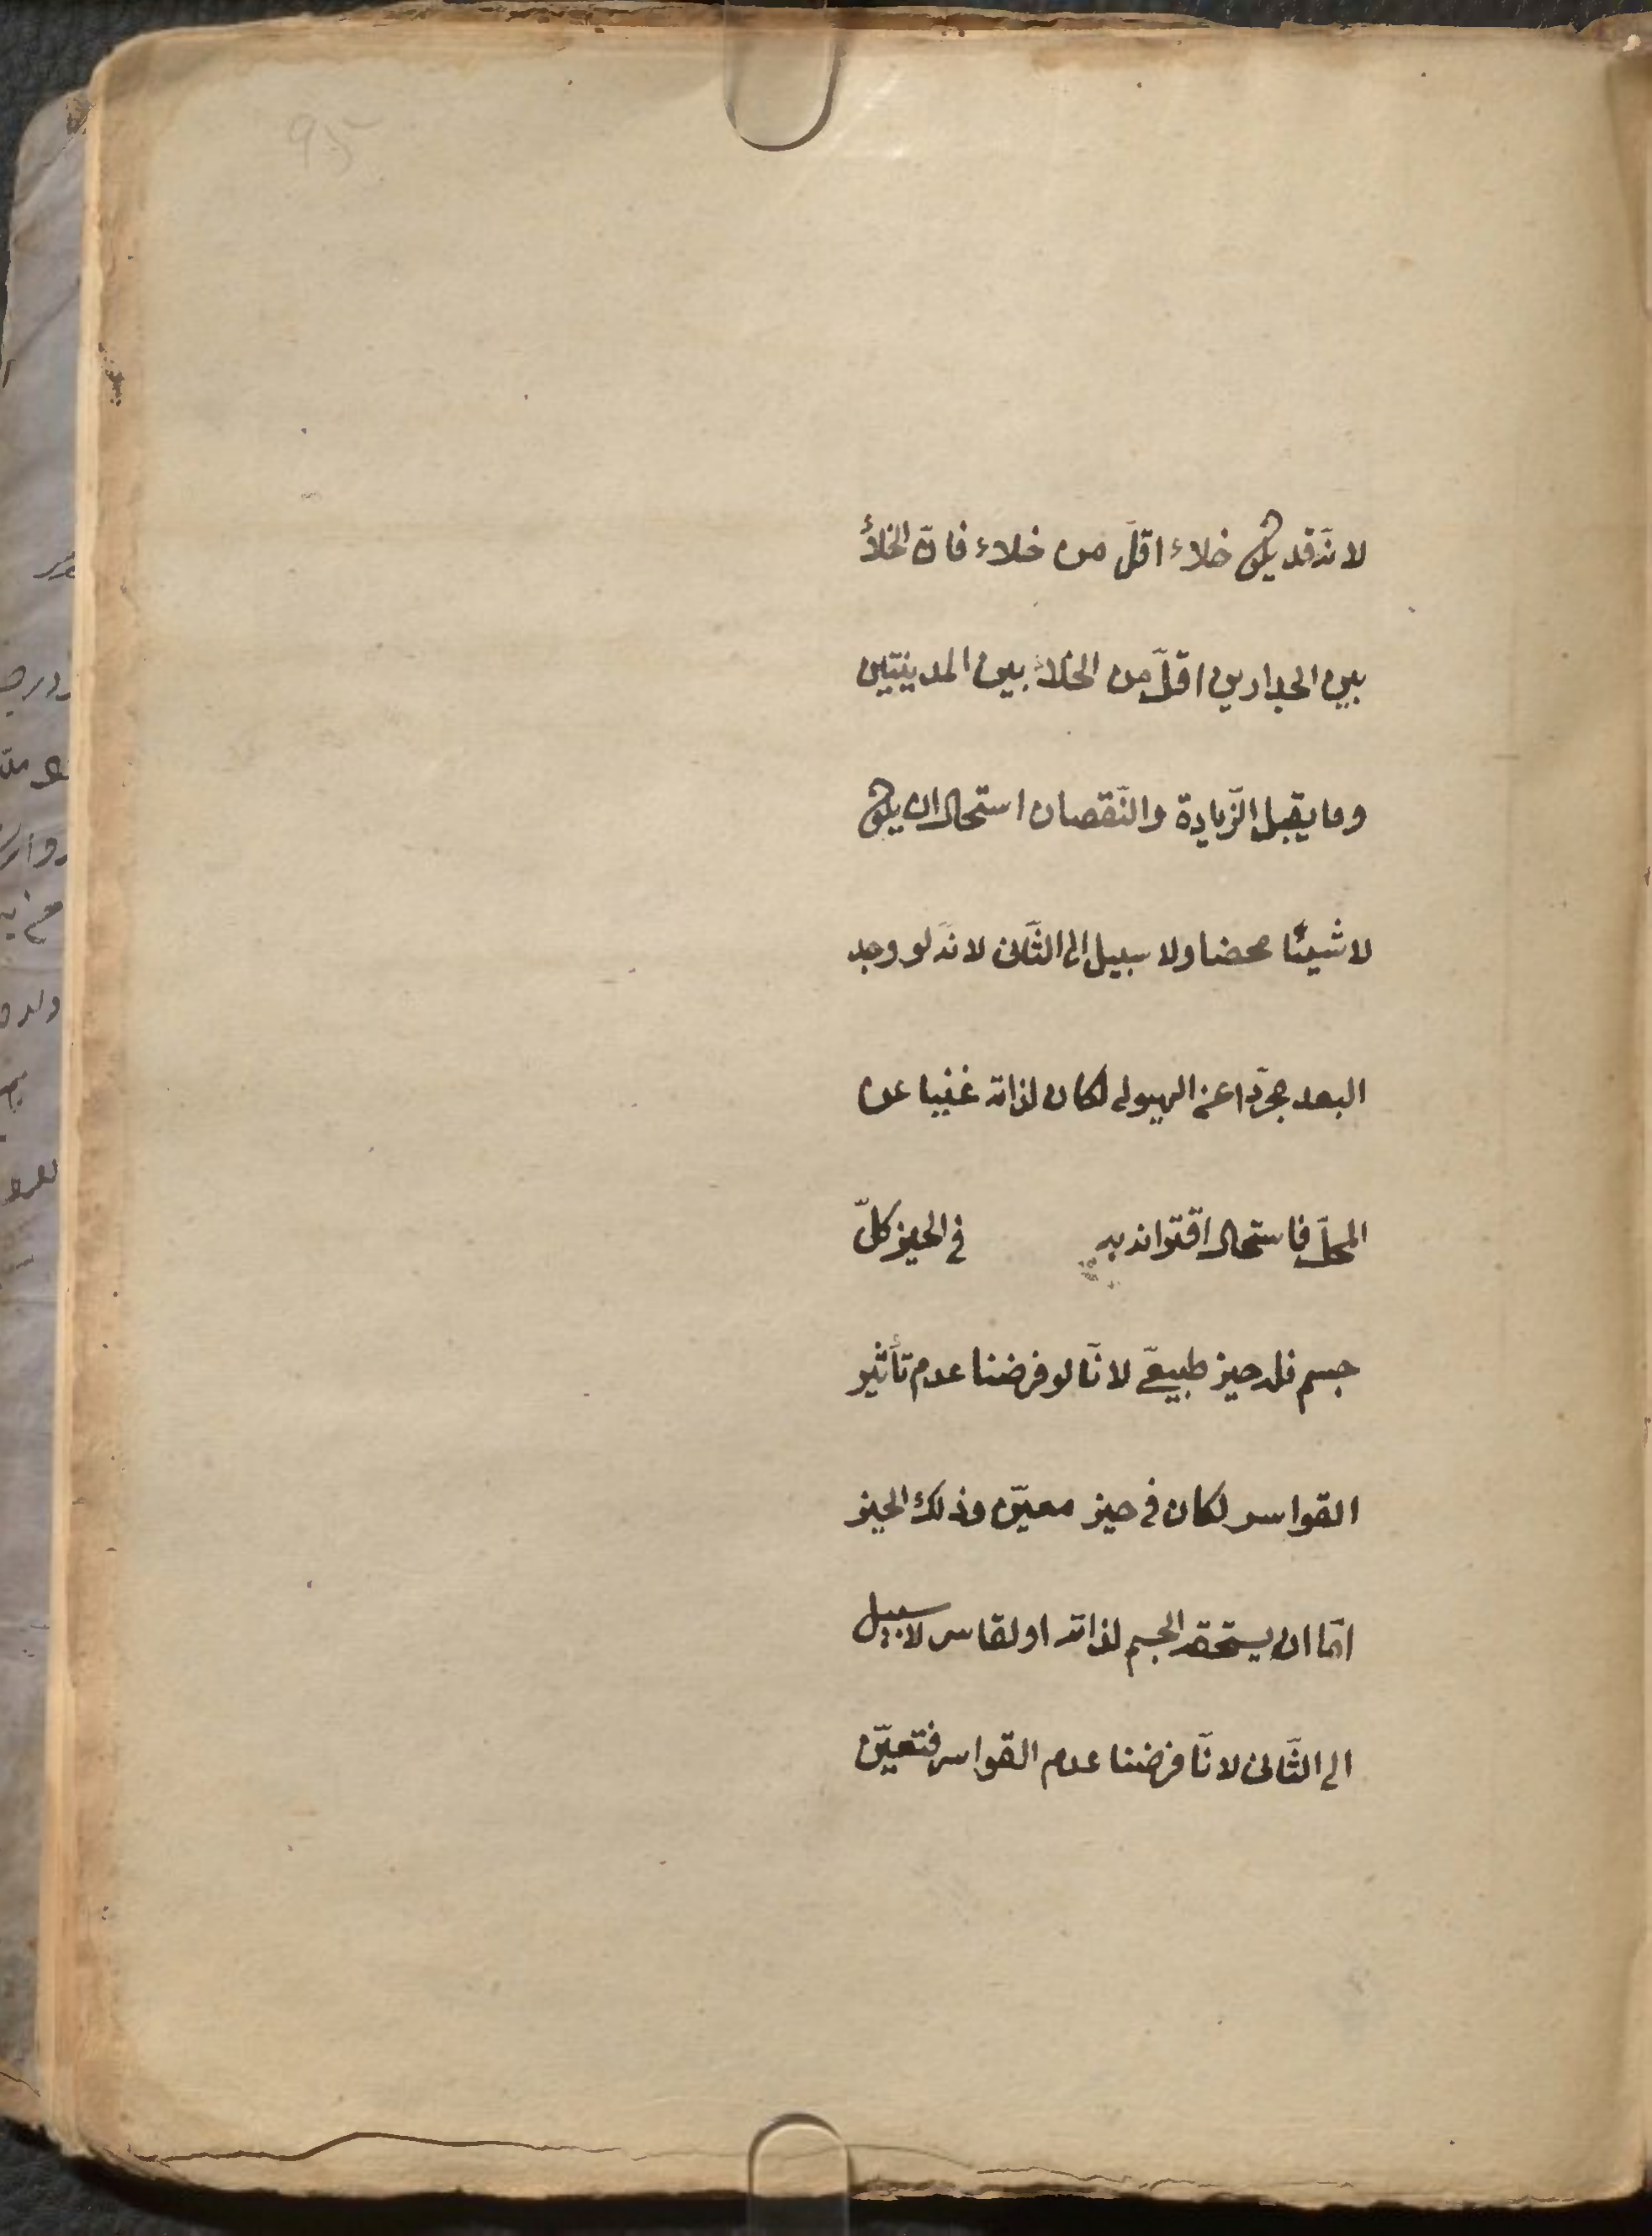 لانّه قد يكون خلاء اقلّ من خلاء فانّ الخلأ
بين الجدارين اقلّ من الخلاء بين المدينتين
وما يقبل الزّيادة والنّقصان استحال ان يكون
لا شيئا محضا ولا سبيل الى الثّانى لانّه لو وجد
البعد مجرّدا عن الهيولى لكان لذاته غنيا عن
المحلّ فاستحال اقترانه به في الحيز كلّ
جسم فله حيز طبيعىّ لانّا لو فرضنا عدم تأثير
القواسر لكان في حيز معيّن وذلك الحيز
امّا ان يستحقه الجسم لذاته او لقاسر لا سبيل
الى الثّانى لانّا فرضنا عدم القواسر فتعيّن